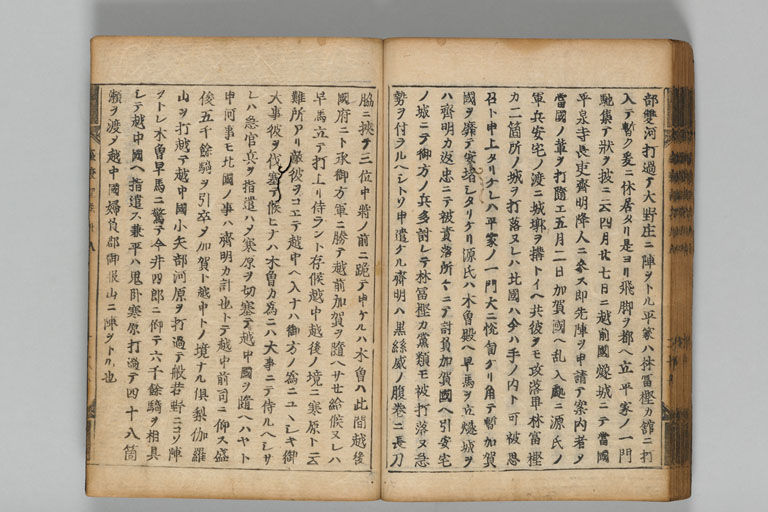 部雙河打過テ大野庄ニ陣ヲトル平家ハ林冨樫カ舘ニ打
入テ暫ク爰ニ休居タリ是ヨリ飛脚ヲ都ヘ立平家ノ一門
馳集テ状ヲ披ニ云四月廿七日ニ越前國燧城ニテ當國
平泉寺長吏齊明降人ニ参ス即先陣ヲ申請テ案内者ヲ
當國ノ輩ヲ打隨エ五月二日加賀國ヘ乱入處ニ源氏ノ
軍兵安宅ノ渡ニ城墎ヲ搆トイヘ共彼ヲモ攻落畢林富樫
カ二箇所ノ城ヲ打落又レハ北國ハ今ハ手ノ内ト可被思
召ト申上タリケレハ平家ノ一門大ニ悦
國ヲ
ハ齊明カ返忠ニテ被責落所々ニテ討負加賀國ヘ引安宅
ノ城ニテ御方ノ兵多討レテ林冨樫カ黨類モ被打落又急
勢ヲ付ラルヘシトソ申遣ケル齊明ハ黒絲威ノ腹巻ニ長刀
脇ニ挾テ三位中將ノ前ニ跪テ申ケルハ木曽ハ此間越後
國府ニト承御方軍ニ勝テ越前加賀ヲ隨ヘサセ給候又レハ
早馬立テ打上リ侍ラント存候越中越後ノ境ニ寒原ト云
難所アリ
大事彼ヲ伐塞テ候ヒナハ木曽カ為ニハ大事ニテ侍ルヘシサ
レハ急官兵ヲ指遣ハメ寒原ヲ切塞テ越中國ヲ隨ヘハヤト
申何事モ北國ノ事ハ齊明カ計也トテ越中前司ニ仰ス盛
俊五千餘騎ヲ引卒メ加賀ト越中トノ境ナル倶梨伽羅
山ヲ打越テ越中國小矢部河原ヲ打過テ般若野ニコソ陣
ヲトレ木曽早馬ニ驚テ今井四郎ニ仰テ六千餘騎ヲ相具
シテ越中國ヘ指遣ス兼平ハ鬼臥寒原打過テ四十八箇
瀬ヲ渡メ越中國婦負郡御服山ニ陣ヲトル也